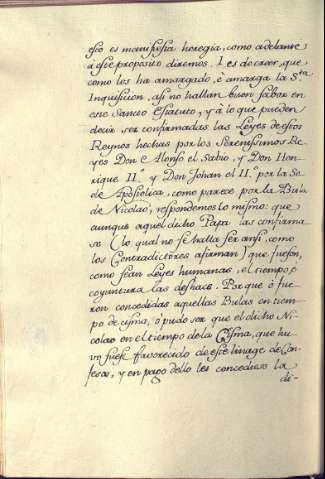 esto es manifiesta heregia, como adelante
à este proposito diremos. I es de creer, que
como les ha amargado, è amarga la S.ta
Inquisicion, asi no hallan buen sabor en
este Sancto Estatuto, y à lo que pueden
decir ser confirmadas las Leyes de estos
Reynos hechas por los Serenissimos Re-
yes Don Alonso el Sabio, y Don Hen-
rique II.º y Don Johan el II. por la Se-
de Apostolica, como parece por la Bula
de Nicolao, respondemos lo mismo: que
aunque aquel dicho Papa las confirma-
se (lo qual no se halla ser ansi, como
los Contradictores afirman) que fuesen,
como sean Leyes humanas, el tiempo è
coyuntura las deshace. Por que ò fue-
ron concedidas aquellas Bulas en tiem-
po de cisma, ò pudo ser que el dicho Ni-
colao en el tiempo de la Cisma, que hu-
vo fuese favorecido de este linage de Con-
fesos, y en pago dello les concediese la
di-